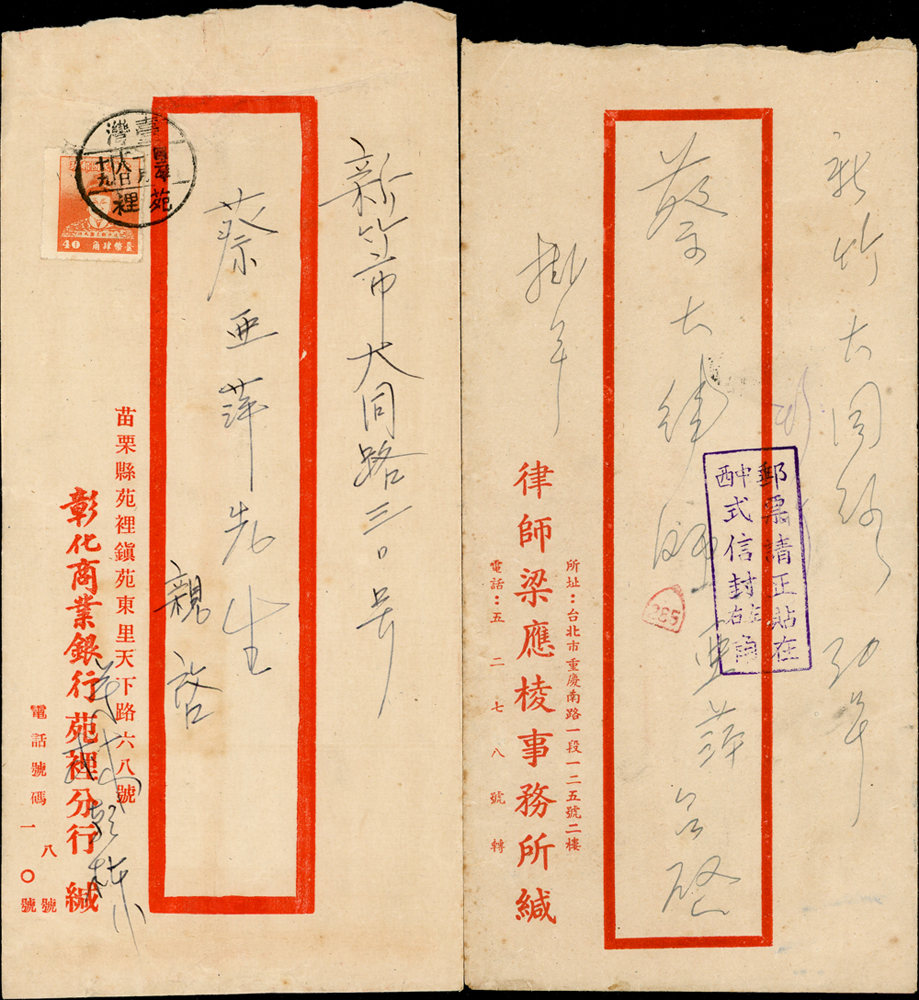 新竹市大同路三0号
蔡亜萍先生
親啓
臺灣
十八日
十九
苑裡
40
臺幣肆角
苗栗縣苑裡鎮苑東里天下路六八號
彰化商業銀行苑裡分行緘
電話號碼一八〇號號
新竹大同路30号
蔡大律師亜萍台啓
掛号
郵票請正貼在
中式信封左角
西 右
285
所址：台北市重慶南路一段一二五號二樓
律師梁應棱事務所緘
電話：五二七八號轉